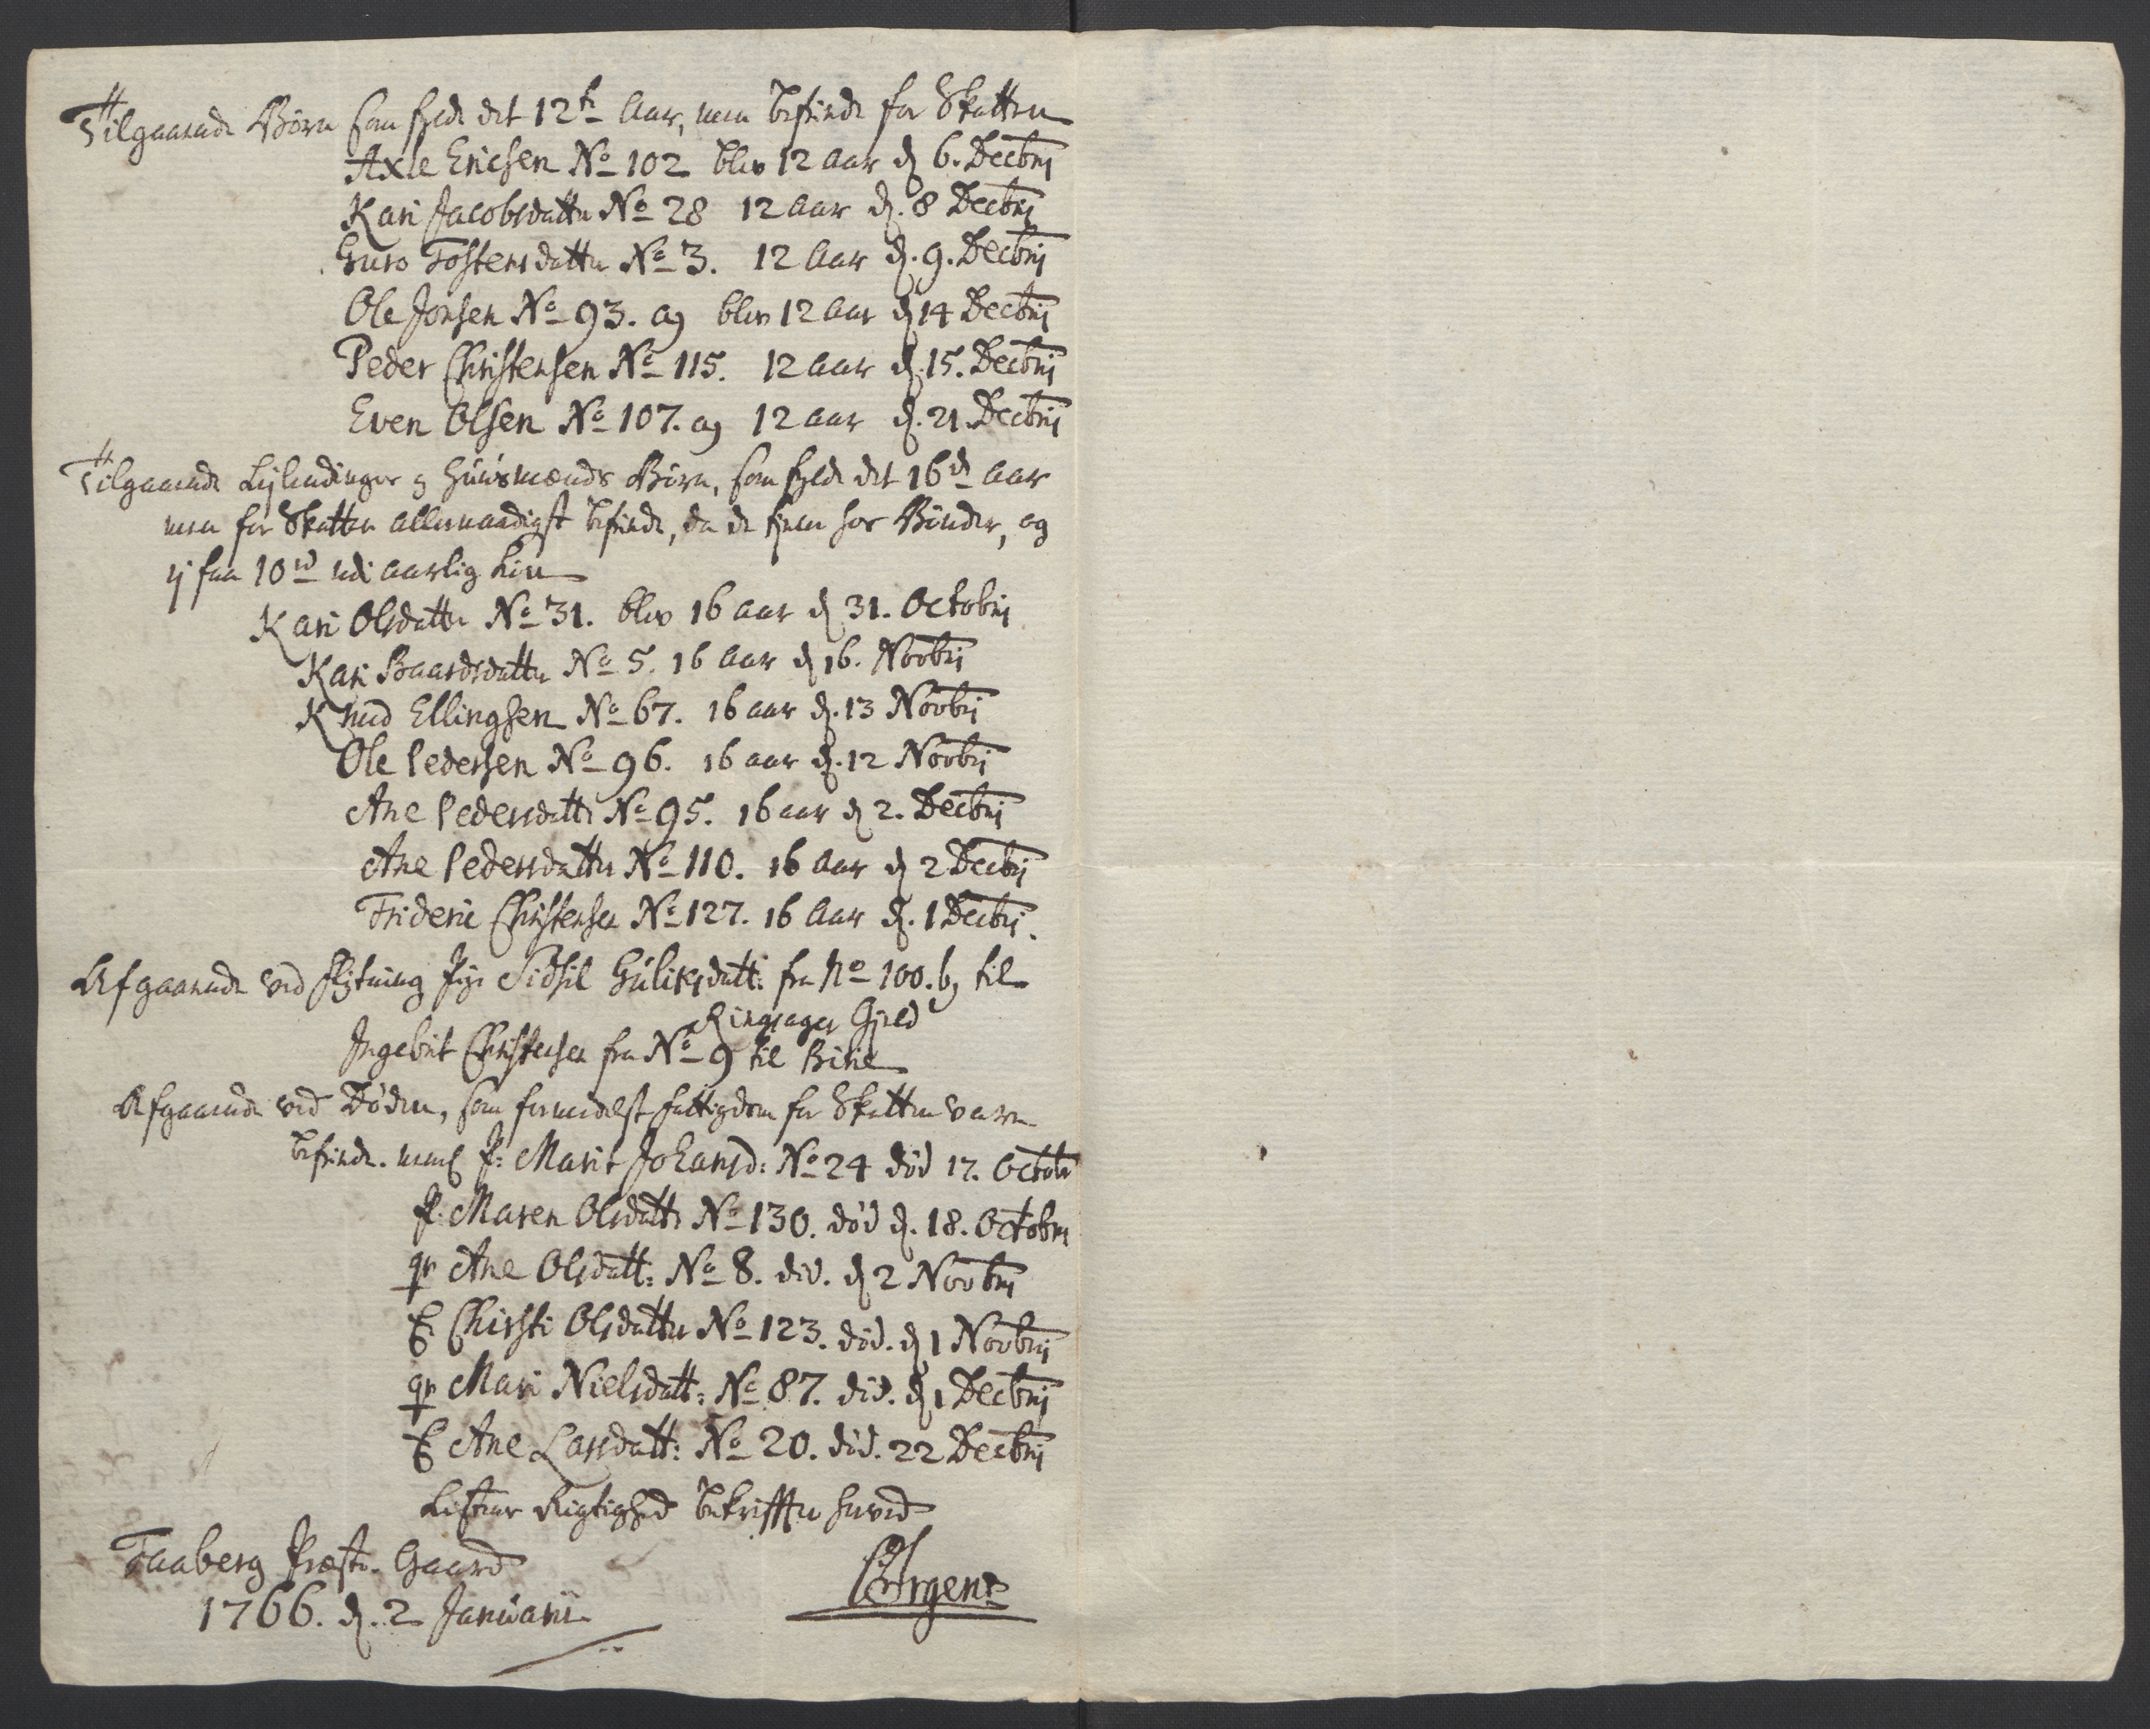 Tilgaaende Børn som fyldt det 12te Aar, men befriede for Skatten
Axle Ericsen No 102 blev 12 Aar d. 6. Decbrj
Kari Jacobsdatter No 28 12 Aar d. 8 Decbrj
Guro Tostensdatter No 3. 12 Aar d. 9. Decbrj
Ole Jonsen No 93. og blev 12 Aar d 14 Decbrj
Peder Christensen No 115. 12 Aar d. 15. Decbrj
Even Olsen No 107. og 12 aar d. 21. Decbrj
Tilgaaende Lejlendinger og Huusmænds Børn, som fyldt det 16de Aar
men for Skatten allernaadigst befriede, da de tjener hos Bønder, og
ej faa 10rd udi aarlig Løn
Kari Olsdatter No 31. blev 16 Aar d 31. Octobrj
Kari Baardsdatter No 5. 16 Aar d 16. Novbrj
Knud Ellingsen No 67. 16 aar d. 13 Novbrj
Ole Pedersen No 96. 16 aar d. 12 Novbrj
Ane Pedersdatt: No 95. 16 aar d 2. Decbrj
Ane Pedersdatter No 110. 16 Aar d 2 Decbrj
Frideric Christensen No 127. 16 Aar d. 1 Decbrj.
Afgaaende ved flytning Pige Sidsil Guliksdatt: fra No 100. b, til
Ringsager Gjeld
Ingebrit Christensen fra No 9 til Birie
Afgaaende ved Døden, som formedelst fattigdom for Skatten vare
befriede. neml P: Marit Johansd: No 24 død 17. Octobr
P. Maren Olsdatt: No 130. død d. 18. Octobrj
qv Ane Olsdatt: No 8. død. d 2 Novbrj
E. Chirsti Olsdatter No 123. død. d 1 Novbrj
qv Mari Nielsdatt: No 87. død. d 1 Decbrj
E Ane Larsdatt: No 20. død. 22 Decbrj
Listens Rigtighed bekræffter herved
Taaberg Præste-Gaard
1766. d. 2 Januarii